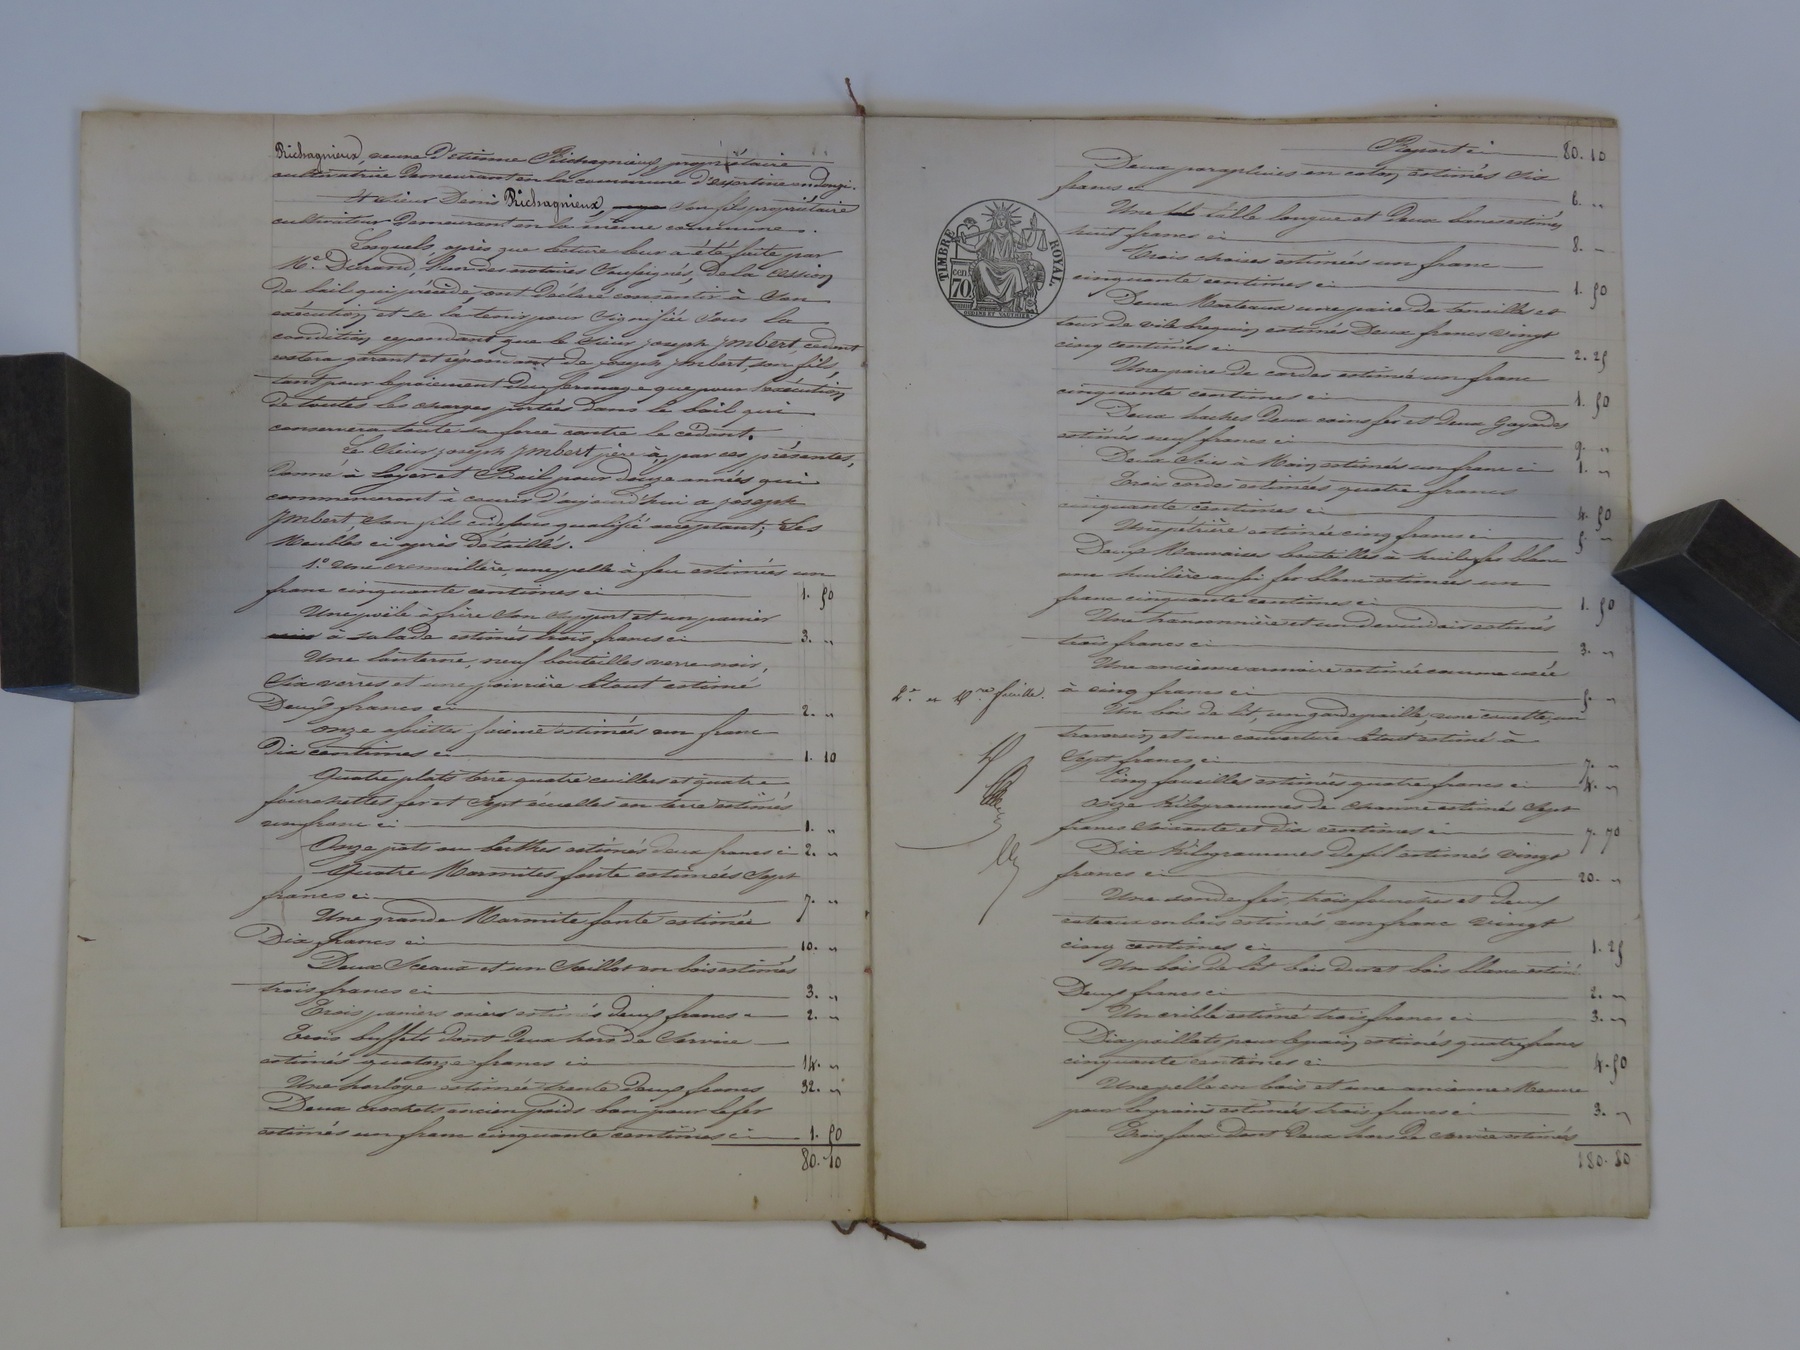 Richagnieux, veuve d'étienne Richagnieux, propriétaire
cultivatrice demeurant en la commune d'essertines en donzi.
Et sieur Denis Richagnieux, son fils propriétaire
cultivateur demeurant en la même commune.
Lesquels, après que lecture leur a été faite par
Me. Durand, l'un des notaires soussignés, de la cession
de bail qui précède, ont déclaré consentir à son
exécution et se la tenir pour signifiée sous la
condition cependant que le sieur joseph jmbert cédant
restera garant et répondant de joseph jmbert son fils,
tant pour le paiement du fermage que pour l'exécution
de toutes les charges portées dans le bail qui
conservera toute sa force contre le cédant.
Le sieur joseph jmbert père a, par ces présentes,
donné à loyer et Bail pour douze années qui
commenceront à courir d'aujourd'hui a joseph
jmbert, son fils ci dessus qualifié acceptant; Les
Meubles ci après détaillés.
1.° une cremaillère, une pelle à feu estimées un
franc cinquante centimes ci 1. 50
Une poële à frire son support et un panier
à salade estimés trois francs ci 3. "
Une lanterne, neuf bouteilles verre noir,
six verres et une poivrière le tout estimé
Deux francs ci 2. "
onze assiettes faience estimées un franc
Dix centimes ci 1. 10
Quatre plats terre quatre cuillers et quatre
fourchettes fer et sept écuelles en terre estimés
un franc ci 1. "
Onze pots ou berthes estimés deux francs ci 2. "
Quatre Marmites fonte estimées sept
francs ci 7. "
Une grande Marmite fonte estimée
Dix francs ci 10. "
Deux Sceaux et un Seillot en bois estimés
trois francs ci 3. "
Trois paniers osier estimés deux francs ci 2. "
Trois buffets dont Deux hors de Service
estimés quatorze francs ci 14. "
Une horloge estimée trente deux francs 32. "
Deux crochets ancien poids bon pour le fer
estimés un franc cinquante centimes ci 1. 50
80. 10
Report ci 80. 10
Deux parapluies en coton estimés six
francs ci 6. "
Une table longue et Deux bancs estimés
huit francs ci 8. "
Trois chaises estimées un franc
cinquante centimes ci 1. 50
Deux Marteaux une paire de tenailles et
tour de vilebrequin estimés Deux francs vingt
cinq centimes ci 2. 25
Une paire de cardes estimée un franc
cinquante centimes ci 1. 50
Deux haches Deux coins fer et deux Goyardes
estimés neuf francs ci 9. "
Deux Scies à Main estimées un franc ci 1. "
Trois cordes estimées quatre francs
cinquante centimes ci 4. 50
Une pétrière estimée cinq francs ci 5. "
Deux Mauvaises bouteilles à huile fer blanc
une huilière aussi fer blanc estimées un
franc cinquante centimes ci 1. 50
Une et un devidoir estimés
trois francs ci 3. "
Une ancienne armoire estimée comme usée
à cinq francs ci 5. "
2.e et 4.re feuille.
Un bois de lit, un gardepaille, une couette, un
traversin et une couverture le tout estimé à
sept francs ci 7. "
Cinq faucilles estimées quatre francs ci 4. "
onze kilogrammes de chanvre estimés sept
francs soixante et dix centimes ci 7. 70
Dix kilogrammes de fil estimés vingt
francs ci 20. "
Une sonde fer, trois fourches et deux
rateaux en bois estimés un franc vingt
cinq centimes ci 1. 25
Un bois de lit bois dur et bois blanc estimé
Deux francs ci 2. "
Un crible estimé trois francs ci 3. "
Dix paillats pour le pain estimés quatre francs
cinquante centimes ci 4. 50
Une pelle en bois et une ancienne Mesure
pour le grain estimés trois francs ci 3. "
Trois faux dont Deux hors de service estimées
180. 80
TIMBRE ROYAL.
cen 70.